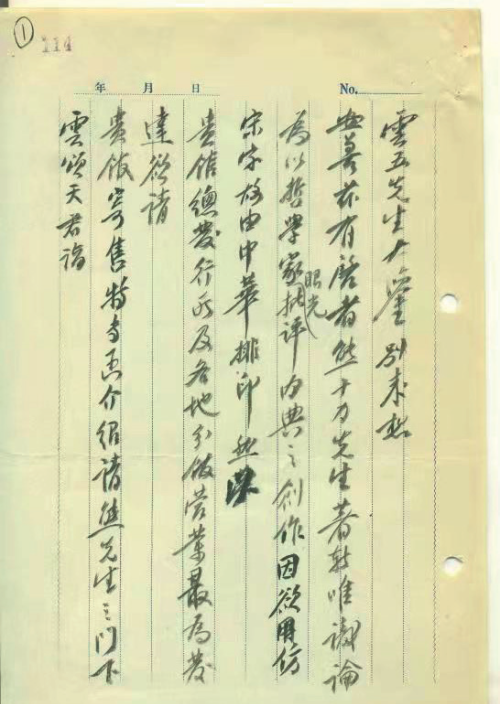 ①
114
年 月 日 No.
雲五先生大鑒別來想
無恙茲有啓者熊十力先生著新唯識論
為以哲學家眼光批評內典之創作因欲用仿
宋字故由中華排印然
貴館總發行所及各地分館營業最為發
達欲請
貴館寄售特專函介紹請熊先生之門下
雲頌天君詣